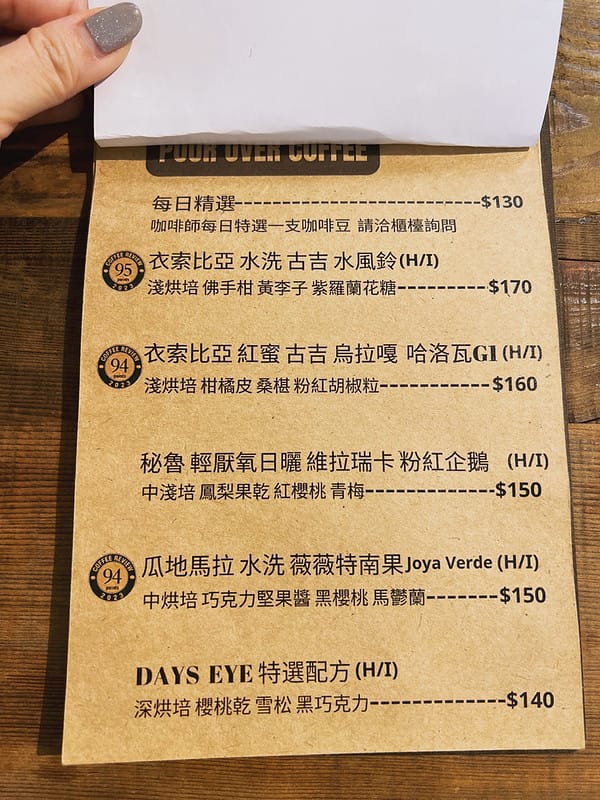 POUR OVER COFFEE
每日精選-----------------------------$130
咖啡師每日特選一支咖啡豆 請洽櫃檯詢問
COFFEE REVIEW 95 points 2023
衣索比亞 水洗 古吉 水風鈴(H/I)
淺烘培 佛手柑 黃李子 紫羅蘭花糖-----------$170
COFFEE REVIEW 94 points 2023
衣索比亞 紅蜜 古吉 烏拉嘎 哈洛瓦G1 (H/I)
淺烘培 柑橘皮 桑椹 粉紅胡椒粒-------------$160
秘魯 輕厭氧日曬 維拉瑞卡 粉紅企鵝 (H/I)
中淺培 鳳梨果乾 紅櫻桃 青梅---------------$150
COFFEE REVIEW 94 points 2023
瓜地馬拉 水洗 薇薇特南果Joya Verde (H/I)
中烘培 巧克力堅果醬 黑櫻桃 馬鬱蘭--------$150
DAYS EYE 特選配方 (H/I)
深烘培 櫻桃乾 雪松 黑巧克力---------------$140